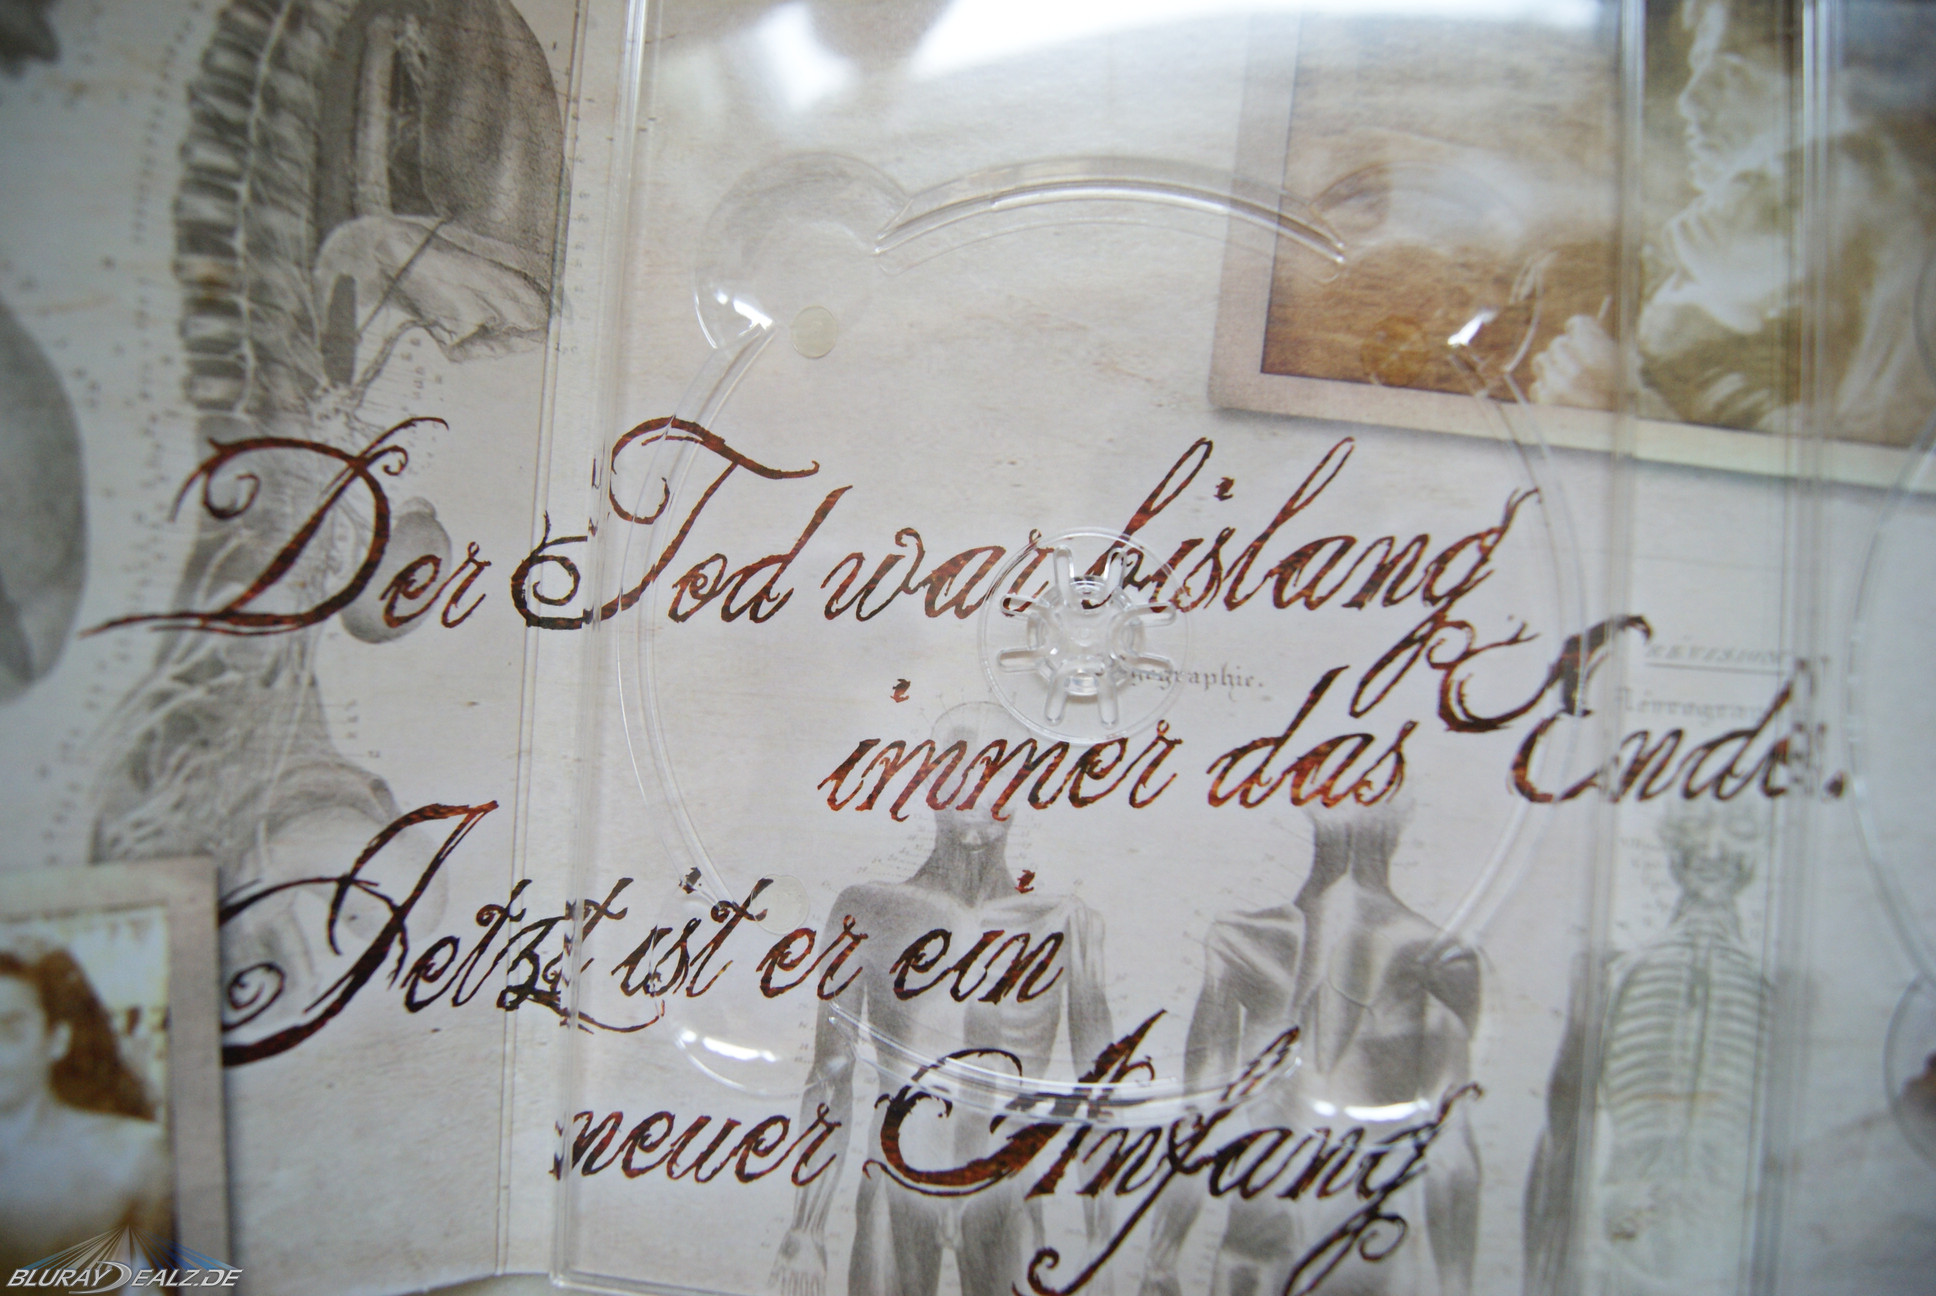 Der Tod war bislang
immer das Ende.
Jetzt ist er ein
neuer Anfang
BLURAYDEALZ.DE